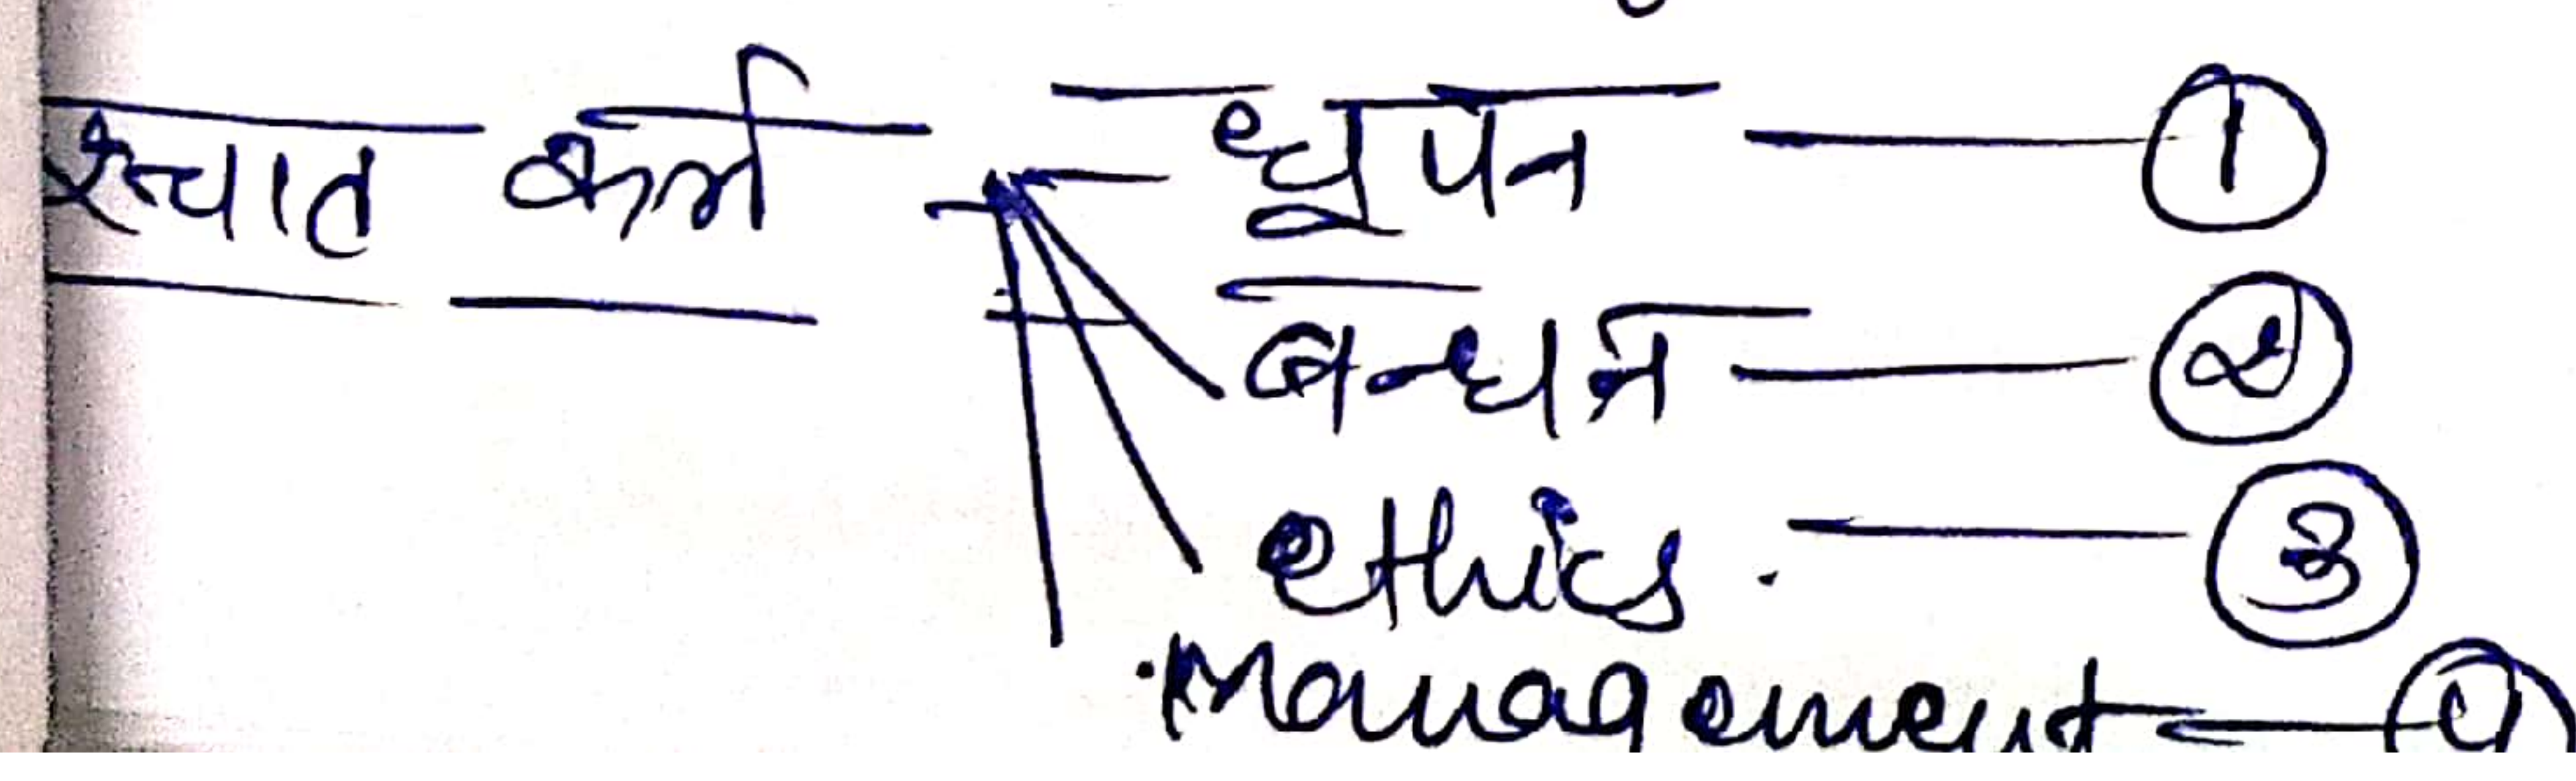 श्चात कर्म धूपन ①
बन्धन ②
ethics. ③
Management